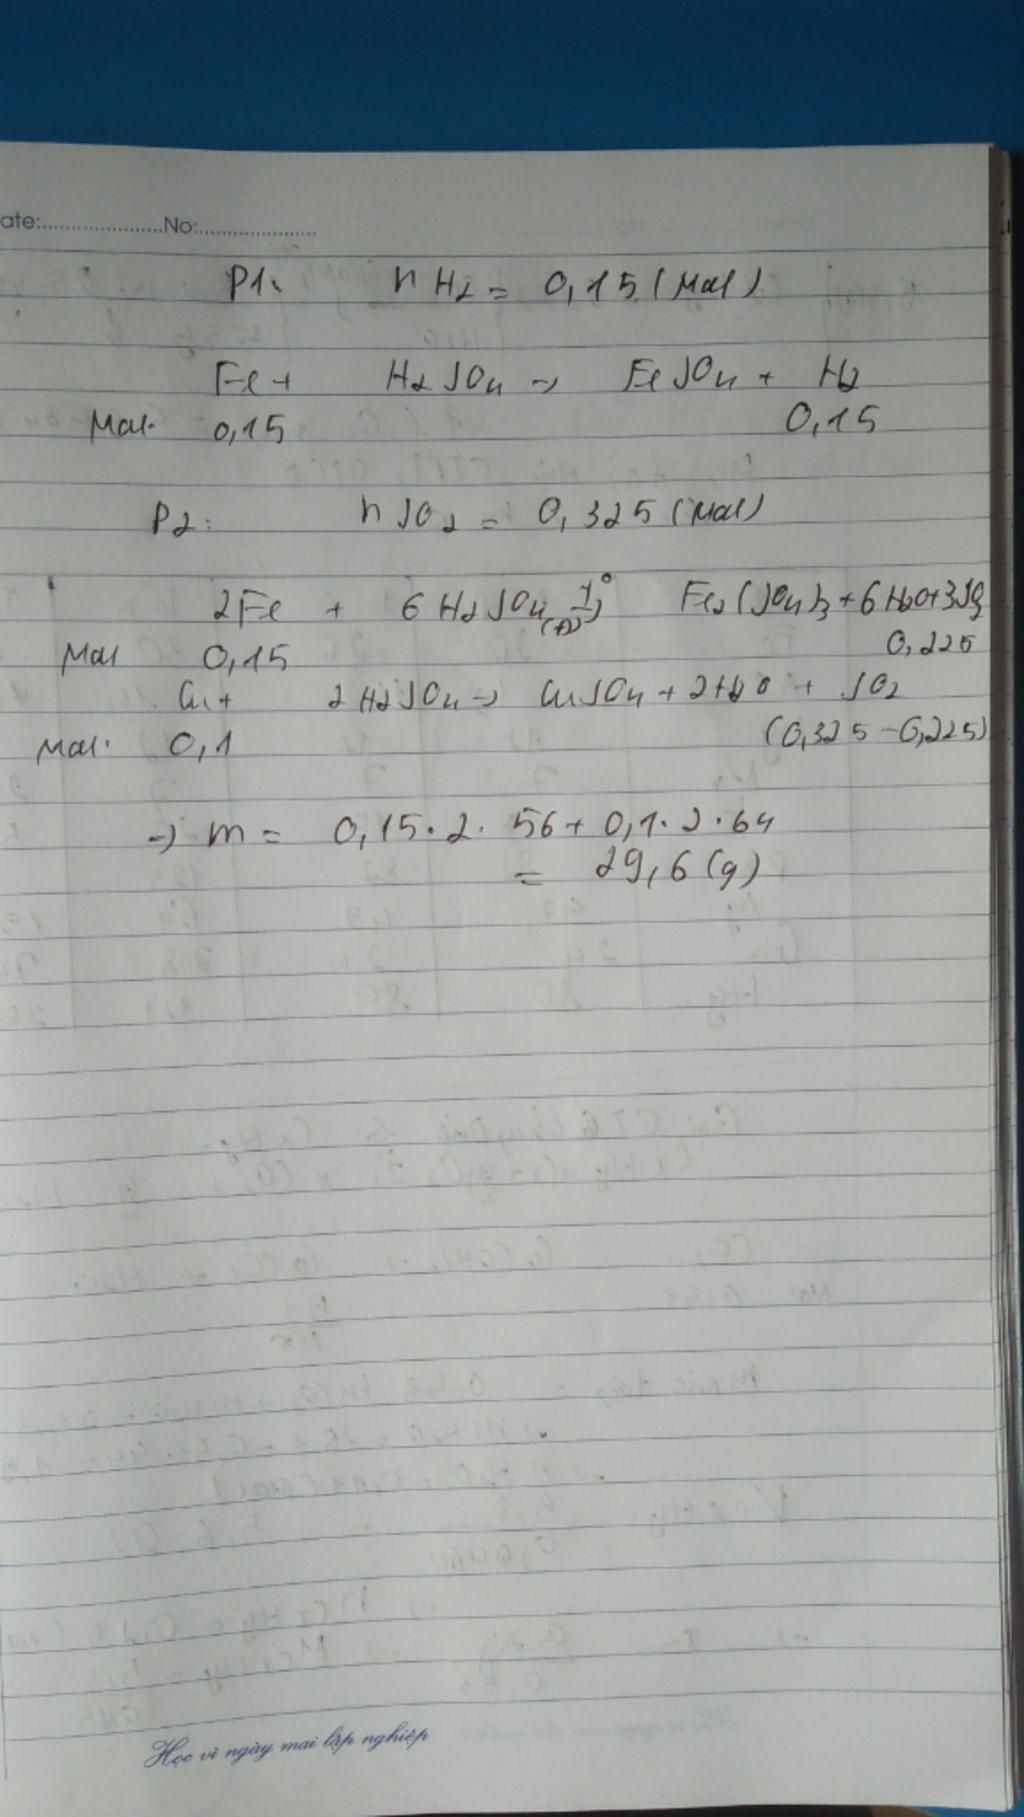 ate:.....................No:.....................
P1: nH2 = 0,15 (mol)
Fe + H2SO4 → FeSO4 + H2
Mol: 0,15 0,15
P2: nSO2 = 0,325 (mol)
2Fe + 6H2SO4(đ) t° → Fe2(SO4)3 + 6H2O + 3SO2
Mol 0,15 0,225
Cu + 2H2SO4 → CuSO4 + 2H2O + SO2
Mol: 0,1 (0,325 - 0,225)
→ m = 0,15.2.56 + 0,1.2.64
= 29,6 (g)
Học vì ngày mai lập nghiệp